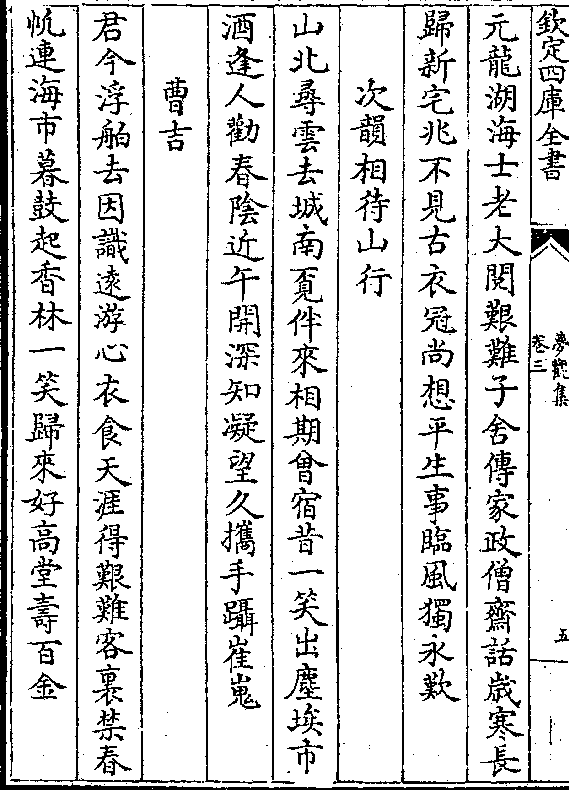 欽定四庫全書
夢觀集
卷三
五
元龍湖海士老大閱艱難子舍傳家政僧齋話歲寒長
歸新宅兆不見古衣冠尚想平生事臨風獨永歎
次韻相待山行
山北尋雲去城南覓伴來相期曾宿昔一笑出塵埃市
酒逢人勸春陰近午開深知凝望久攜手躡崔嵬
曹吉
君今浮舶去因識遠游心衣食天涯得艱難客裏禁春
帆連海市暮鼓起香林一笑歸來好高堂壽百金